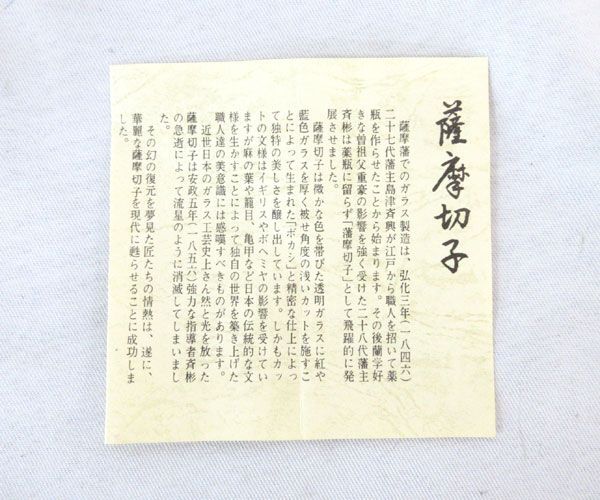 薩摩切子
薩摩藩でのガラス製造は、弘化三年(一八四六)
二十七代藩主島津斉興が江戸から職人を招いて薬
瓶を作らせたことから始まります。その後蘭学好
きな曽祖父重豪の影響を強く受けた二十八代藩主
斉彬は薬瓶に留らず「薩摩切子」として飛躍的に発
展させました。
薩摩切子は微かな色を帯びた透明ガラスに紅や
藍色ガラスを厚く被せ角度の浅いカットを施すこ
とによって生まれた「ボカシ」と精密な仕上によっ
て独特の美しさを醸し出しています。しかもカッ
トの文様はイギリスやボヘミヤの影響を受けてい
ますが麻の葉や籠目、亀甲など日本の伝統的な文
様を生かすことによって独自の世界を築き上げた
職人達の美意識には感嘆すべきものがあります。
近世日本のガラス工芸史上さん然と光を放った
薩摩切子は安政五年(一八五六)強力な指導者斉彬
の急逝によって流星のように消滅してしまいまし
た。
その幻の復元を夢見た匠たちの情熱は、遂に、
華麗な薩摩切子を現代に甦らせることに成功しま
した。